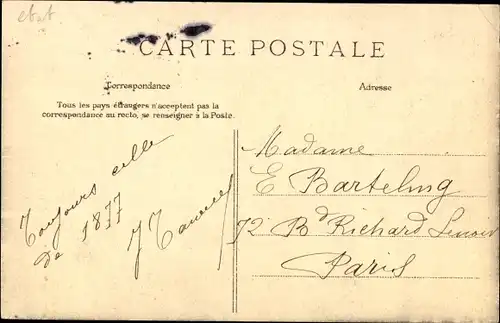 etat
CARTE POSTALE
Correspondance
Adresse
Tous les pays étrangers n'acceptent pas la
correspondance au recto, se renseigner à la Poste.
Toujours celle
de 1877
Madame
E Barteling
72 Bd Richard Lenoir
Paris